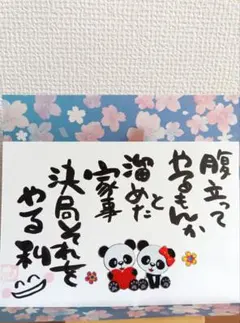 腹立って
やるもんか
と
溜めた
家事
決局それを
やる私